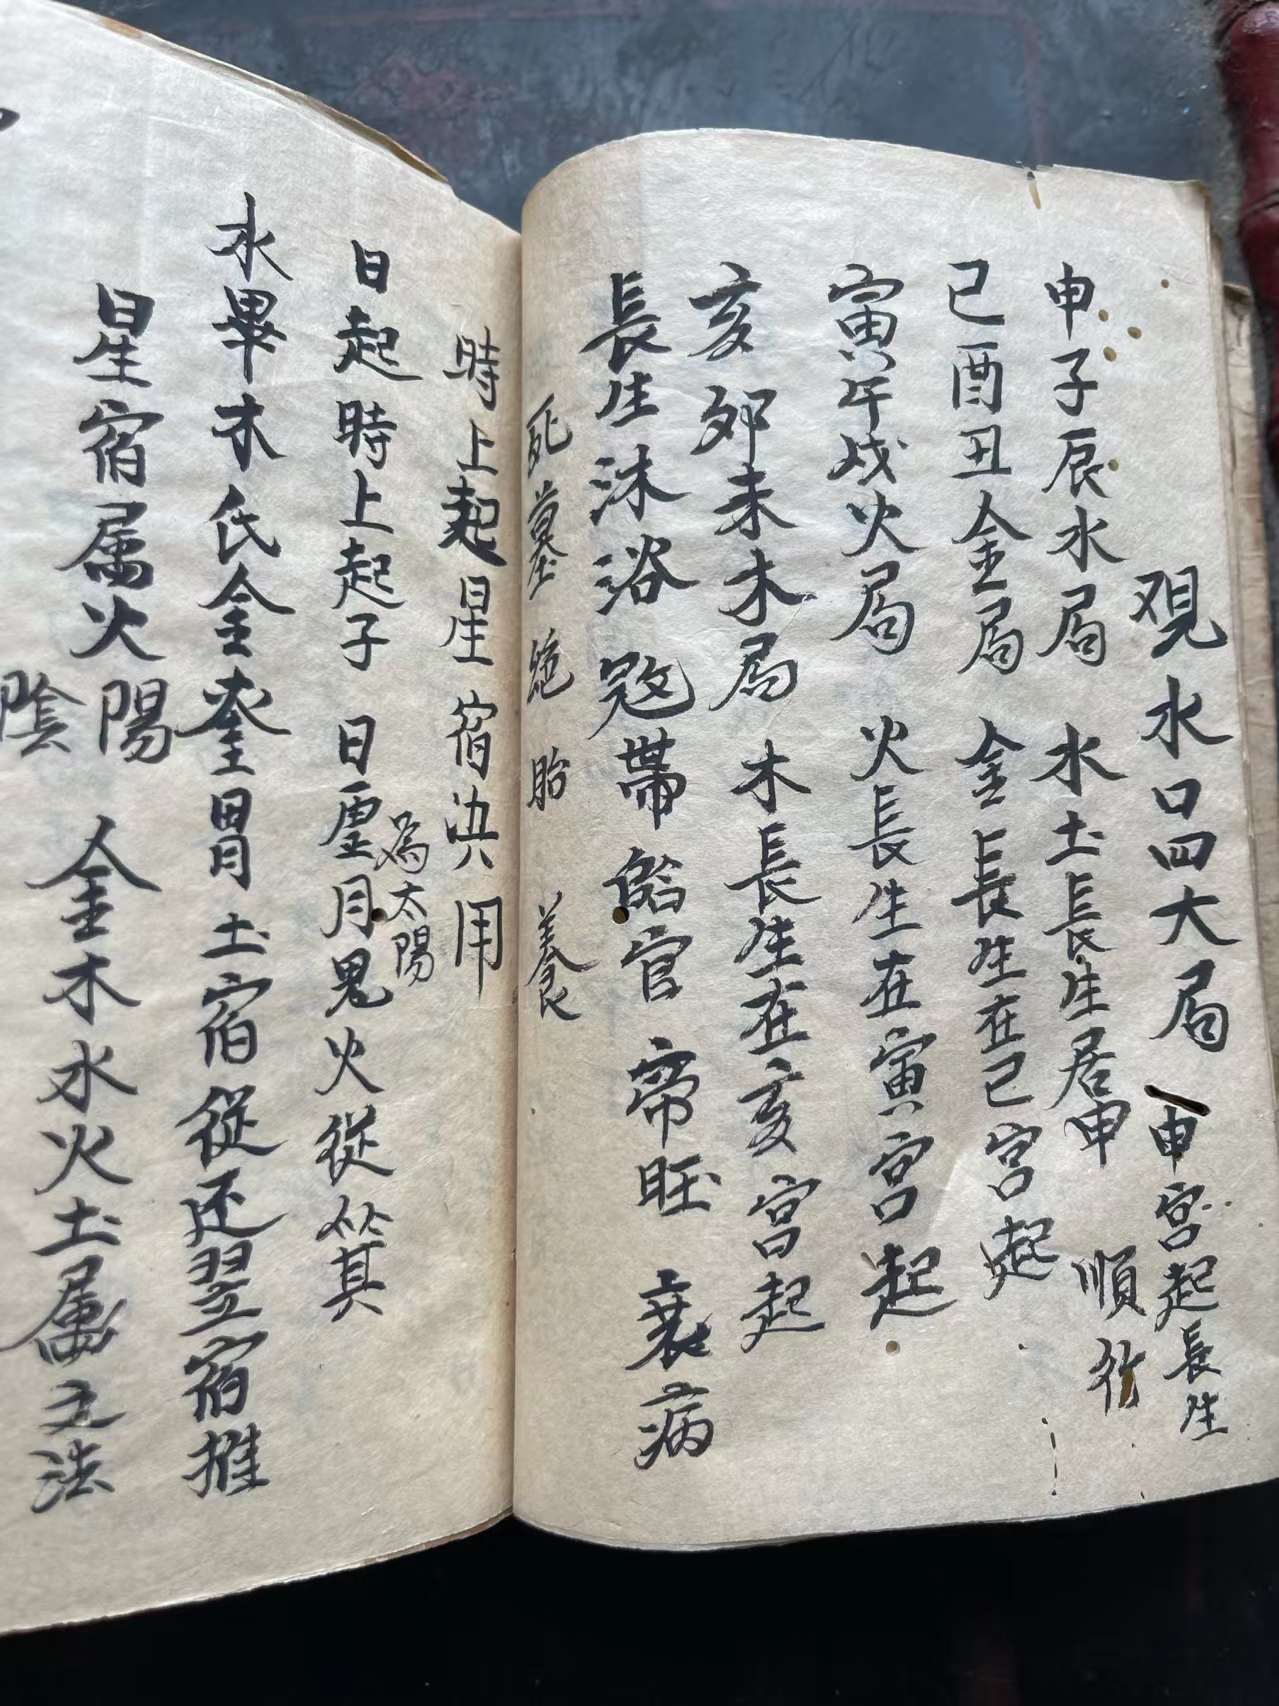 观水口四大局 申宮起長生
順行
申子辰水局 水土長生居申
巳酉丑金局 金長生在巳宮起
寅午戌火局 火長生在寅宮起
亥卯未木局 木長生在亥宮起
長生沐浴冠帶臨官帝旺衰病
死墓絶胎養
時上起星宿決用
為太陽
日起時上起子 日虚月鬼火從箕
水畢木氐金奎胃土宿從还翌宿推
星宿属火陽 金木水火土属之法
陰